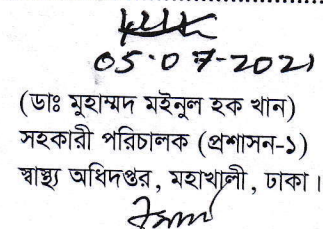 05.07-2021
(ডাঃ মুহাম্মদ মইনুল হক খান)
সহকারী পরিচালক (প্রশাসন-১)
স্বাস্থ্য অধিদপ্তর, মহাখালী, ঢাকা।